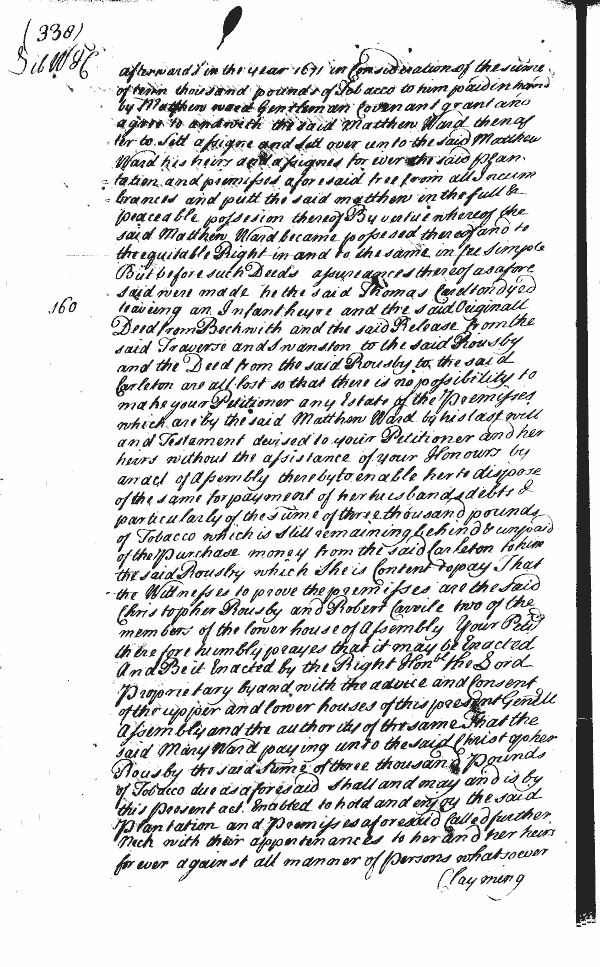 (338)
Lib W H C
afterwards in the year 1671 in Consideration of the sume
of tenn thousand pounds of Tobacco to him paid in hand
by Matthew ward Gentleman Covenant grant and
agree to and with the said Matthew Ward thenaf
ter to Sell assigne and sett over unto the said Matthew
Ward his heirs and assignes for ever the said plan
tation and premisses aforesaid free from all encum
brances and putt the said matthew in the full &
peaceable possesion thereof By vertue whereof the
said Matthew Ward became possesed thereof and to
the equitable Right in and to the same in fee simple
But before such Deeds assureances thereof as afore
said were made he the said Thomas Carleton dyed
leaveing an Infant heyre and the said Originall
160
Deed from Beckwith and the said Release from the
said Traverse and Swanston to the said Rousby
and the Deed from the said Rousby to the said
Carleton are all lost so that there is no possibility to
make your Petitioner any Estate of the Premisses
which are by the said Matthew Ward by his last will
and Testament devised to your Petitioner and her
heirs without the assistance of your Honours by
an act of Assembly thereby to enable her to dispose
of the same for payment of her husbands debts &
particularly of the sume of three thousand pounds
of Tobacco which is still remaining behind & unpaid
of the purchase money from the said Carleton to him
the said Rousby which She is Content to pay That
the Wittnesses to prove the premisses are the said
Christopher Rousby and Robert Carvile two of the
members of the lower house of Assembly Your Petr
therefore humbly prayes that it may be Enacted
And Be it Enacted by the Right Honble the Lord
Proprietary by and with the advice and Consent
of the upper and lower houses of this present Genll
Assembly and the authority of the same That the
said Mary Ward paying unto the said Christopher
Rousby the said Sume of three thousand pounds
of Tobacco due as aforesaid Shall and may and is by
this Present act Enabled to hold and enjoy the said
Plantation and Premisses aforesaid Called further
Neck with their appertenances to her and her heirs
for ever against all manner of Persons whatsoever
Clayming